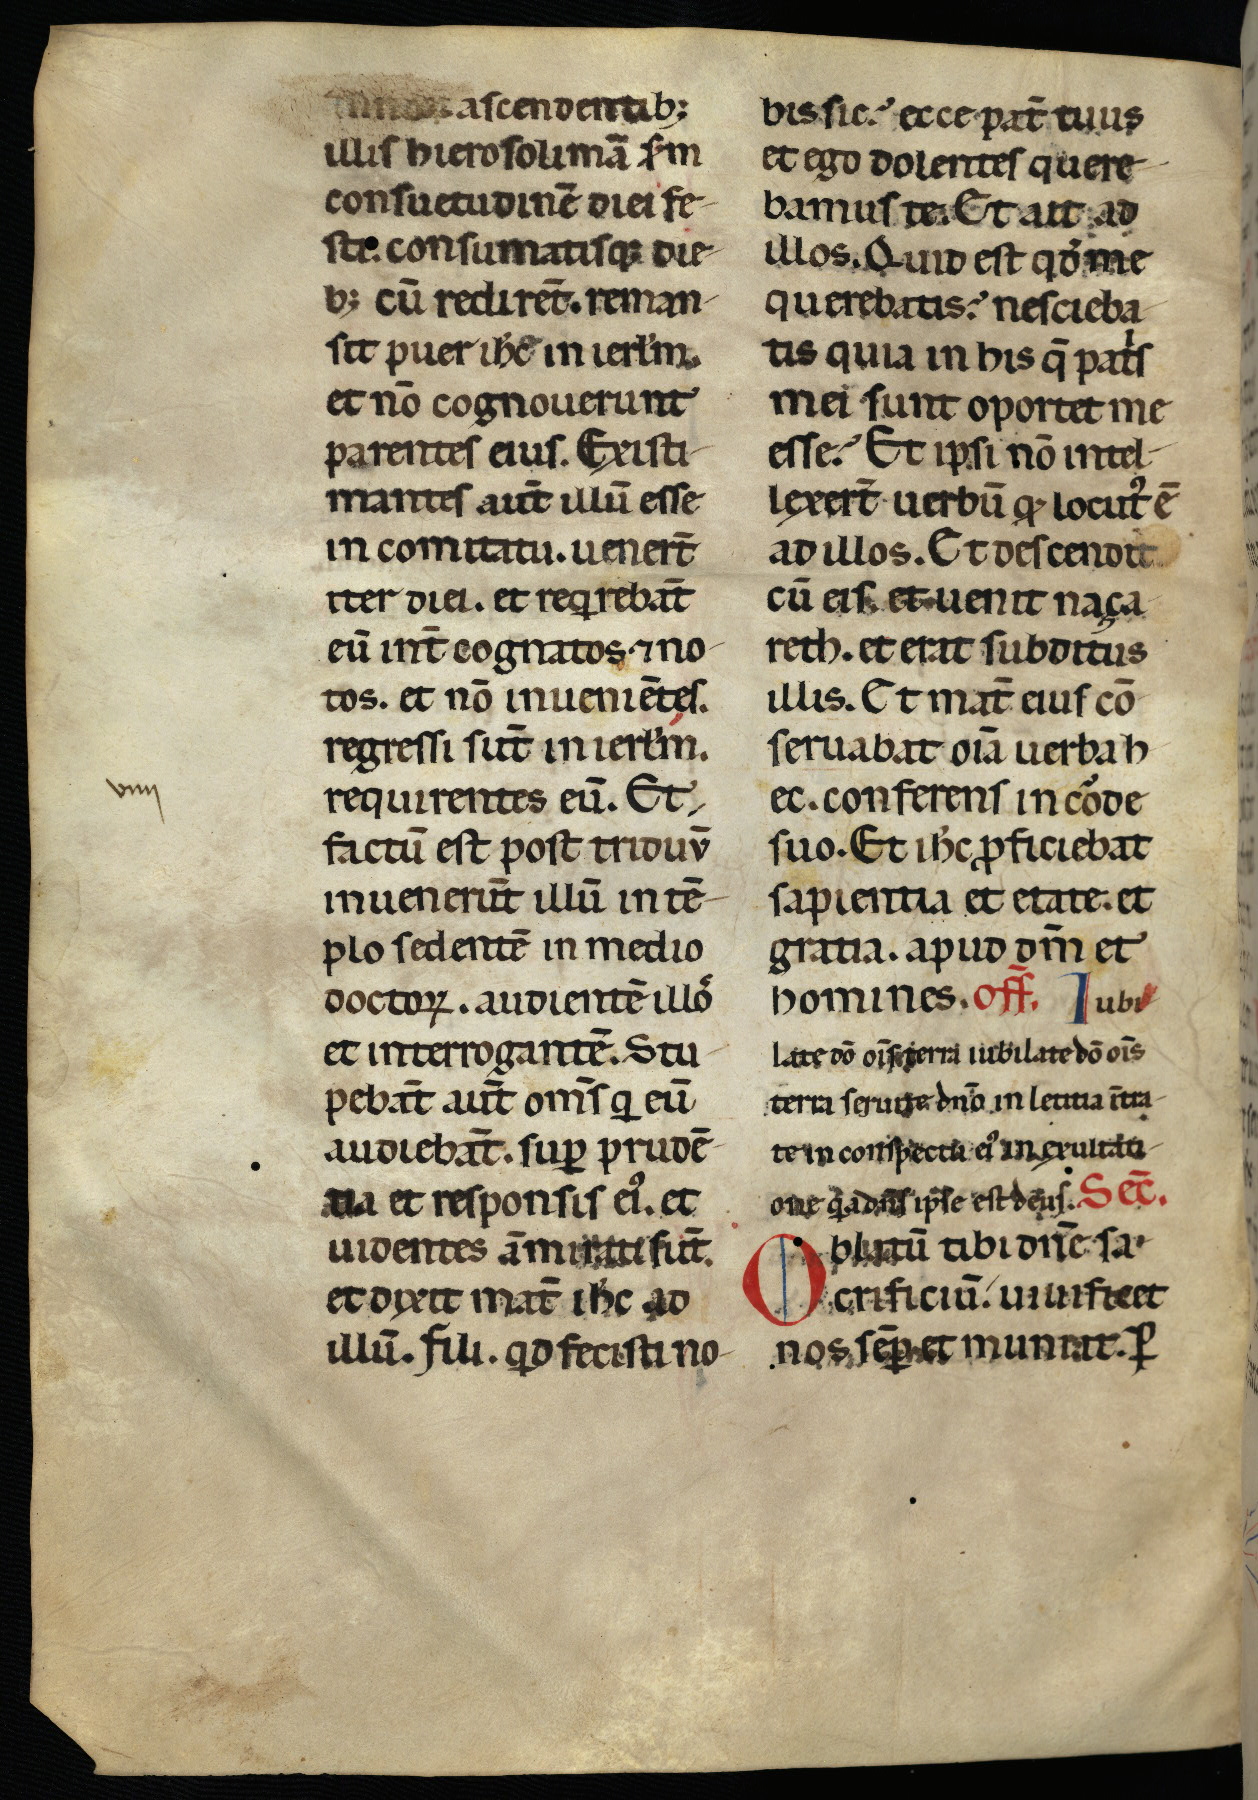 ascendentib;
illis hierosolimā s̄m
consuetudinē diei fe-
sti. consumatisq; die-
b; cū redirēt. reman-
sit puer ih̄c in ierl̄m.
et nō cognouerunt
parentes eius. Existi-
mantes aut̄ illū esse
in comitatu. uenert̄
iter diei. et reqrebāt
eū int̄ cognatos. ⁊ no-
tos. et nō inueniētes.
regressi sūt in ierl̄m.
requirentes eū. Et
viiii
factū est post triduū
inuenerūt illū in tē-
plo sedentē in medio
doctoꝝ. audientē illo᷒
et interrogantē. Stu
pebāt aut̄ om̄s qi eū
audiebāt. suꝑ prudē-
tia et responsis eiꝰ. et
uidentes āmirati sūt.
et dixit mat̄ ih̄c ad
illū. Fili. qid fecisti no-
bis sic? ecce pat̄ tuus
et ego dolentes quere-
bamus te. Et ait ad
illos. Quid est qd̓ me
querebatis? nescieba
tis quia in his q̄ patis
mei sunt oportet me
esse? Et ipsi nō intel-
lexert̄ uerbū qd locutꝰ ē
ad illos. Et descendit
cū eis. et uenit naça
reth. et erat subditus
illis. Et mat̄ eius cō
seruabat oīa uerba h
ec. conferens in corde
suo. Et ih̄c ꝓficiebat
sapientia et etate. et
gratia. apud dm̄ et
homines. off̄. Iubi
late dō oīs terra iubilate dō oīs
terra seruite dn̄o in letitia īt̄ra-
te in conspectu eiꝰ in exultati-
one qa dn̄s ip̄se est deus. Sec̄.
Oblatū tibi dn̄e sa-
crificiū. uiuificet
nos sēꝑ et muniat. ꝑ